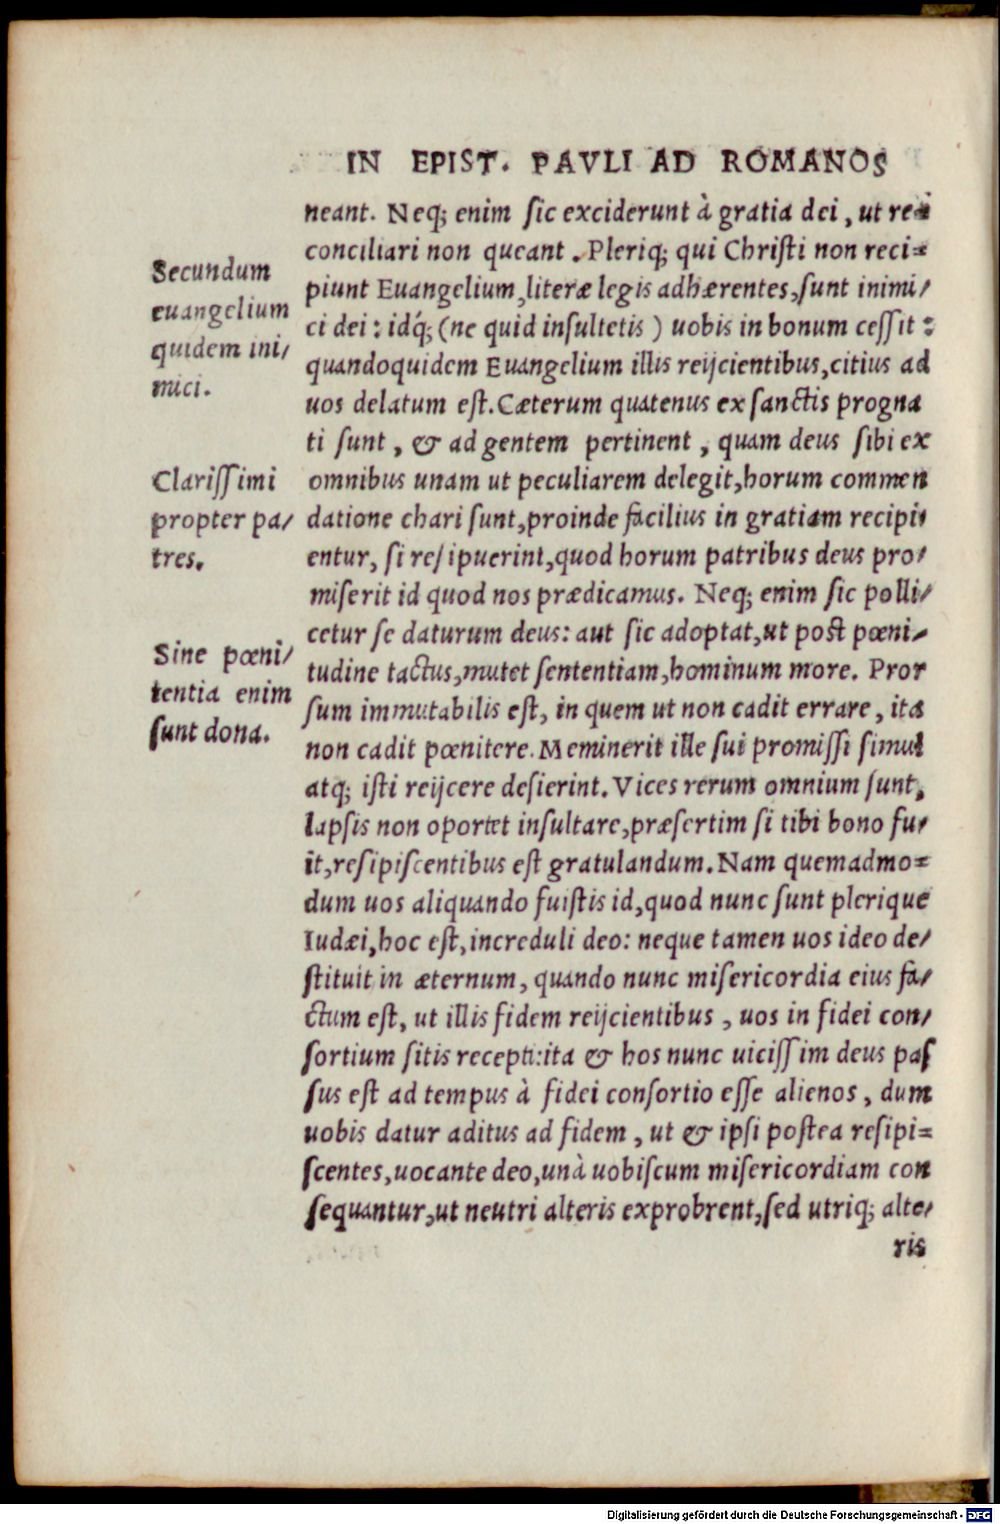 IN EPIST. PAVLI AD ROMANOS
neant. Neq; enim ſic exciderunt à gratia dei, ut re⸗
conciliari non queant. Pleriq; qui Chriſti non reci⸗
piunt Euangelium, literæ legis adhærentes, ſunt inimi/
ci dei: idq́; (ne quid inſultetis) uobis in bonum ceſſit:
quandoquidem Euangelium illis reijcientibus, citius ad
uos delatum eſt. Cæterum quatenus ex ſanctis progna
ti ſunt, & ad gentem pertinent, quam deus ſibi ex
omnibus unam ut peculiarem delegit, horum commen
datione chari ſunt, proinde facilius in gratiam recipi
entur, ſi reſipuerint, quod horum patribus deus pro/
miſerit id quod nos prædicamus. Neq; enim ſic polli/
cetur ſe daturum deus: aut ſic adoptat, ut poſt pœni/
tudine tactus, mutet ſententiam, hominum more. Pror
ſum immutabilis eſt, in quem ut non cadit errare, ita
non cadit pœnitere. Meminerit ille ſui promiſſi ſimul
atq; iſti reijcere deſierint. Vices rerum omnium ſunt,
lapſis non oportet inſultare, præſertim ſi tibi bono fu/
it, reſipiſcentibus eſt gratulandum. Nam quemadmo⸗
dum uos aliquando fuiſtis id, quod nunc ſunt plerique
Iudæi, hoc eſt, increduli deo: neque tamen uos ideo de/
ſtituit in æternum, quando nunc miſericordia eius fa/
ctum eſt, ut illis fidem reijcientibus, uos in fidei con/
ſortium ſitis recepti: ita & hos nunc uiciſſim deus paſ
ſus eſt ad tempus à fidei conſortio eſſe alienos, dum
uobis datur aditus ad fidem, ut & ipſi poſtea reſipi⸗
ſcentes, uocante deo, unà uobiſcum miſericordiam con
ſequantur, ut neutri alteris exprobrent, ſed utriq; alte/
ris
Secundum
euangelium
quidem ini/
mici.
Clariſſimi
propter pa/
tres.
Sine pœni/
tentia enim
ſunt dona.
Digitalisierung gefördert durch die Deutsche Forschungsgemeinschaft - DFG